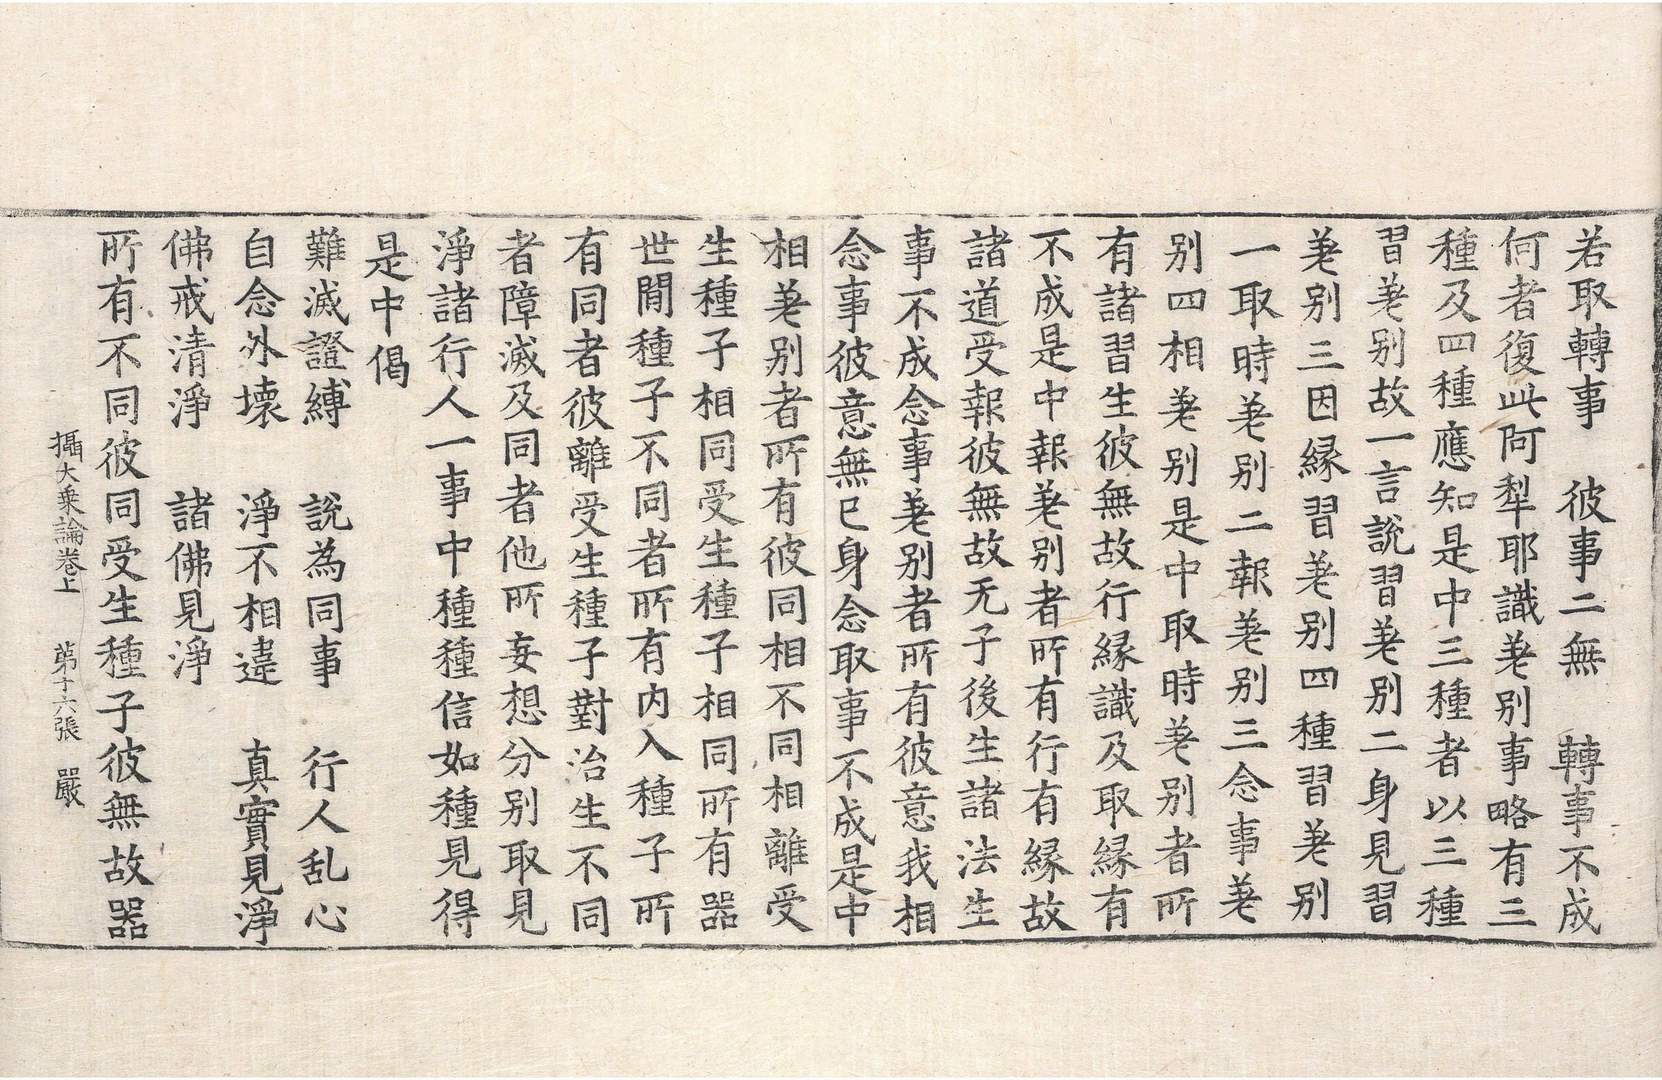 若取轉事　彼事二無　轉事不成
何者復此阿犁耶識差別事略有三
種及四種應知是中三種者以三種
習差別故一言說習差別二身見習
差別三因緣習差別四種習差別
一取時差別二報差別三念事差
別四相差別是中取時差別者所
有諸習生彼無故行緣識及取緣有
不成是中報差別者所有行有緣故
諸道受報彼無故无子後生諸法生
事不成念事差別者所有彼意我相
念事彼意無已身念取事不成是中
相差別者所有彼同相不同相離受
生種子相同受生種子相同所有器
世間種子不同者所有内入種子所
有同者彼離受生種子對治生不同
者障滅及同者他所妄想分別取見
淨諸行人一事中種種信如種見得
是中偈
難滅證縛　說為同事　行人乱心
自念外壞　淨不相違　真實見淨
佛戒清淨　諸佛見淨
所有不同彼同受生種子彼無故器
攝大乘論卷上　第十六張　嚴